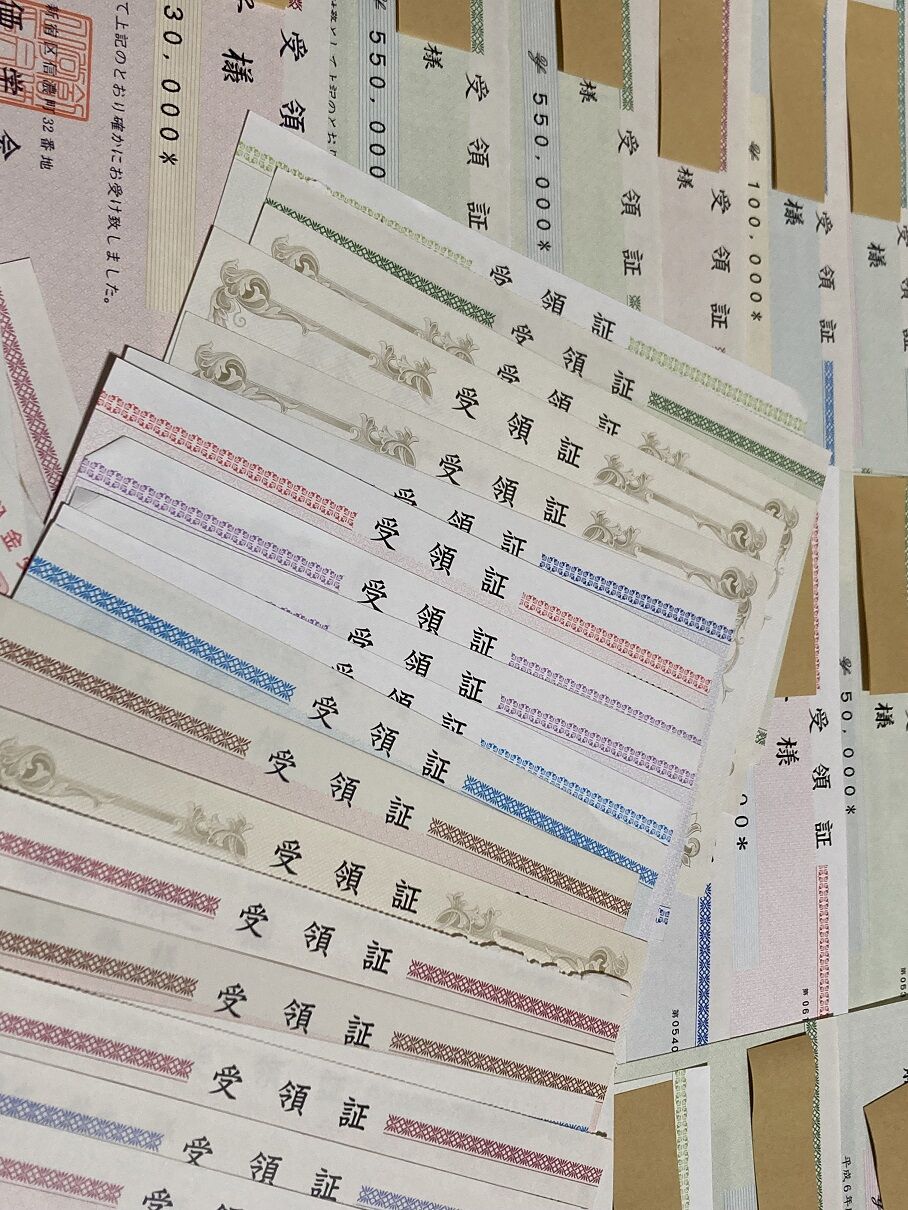 30,000*
て上記のとおり確かにお受け致しました。
新宿区信濃町32番地
価学会
様
受領証
550,000
様
受領証
550,000*
様
受領証
様
受領証
100,000*
様
受領証
様
受領証
受領証
受領
受領証
受領証
受領証
受領証
受領証
受領証
受領証
受領証
受領証
受領証
受領証
受領証
受領証
受領証
50,000*
様
受領証
様
0*
第0540
第061
第053
平成6年
金